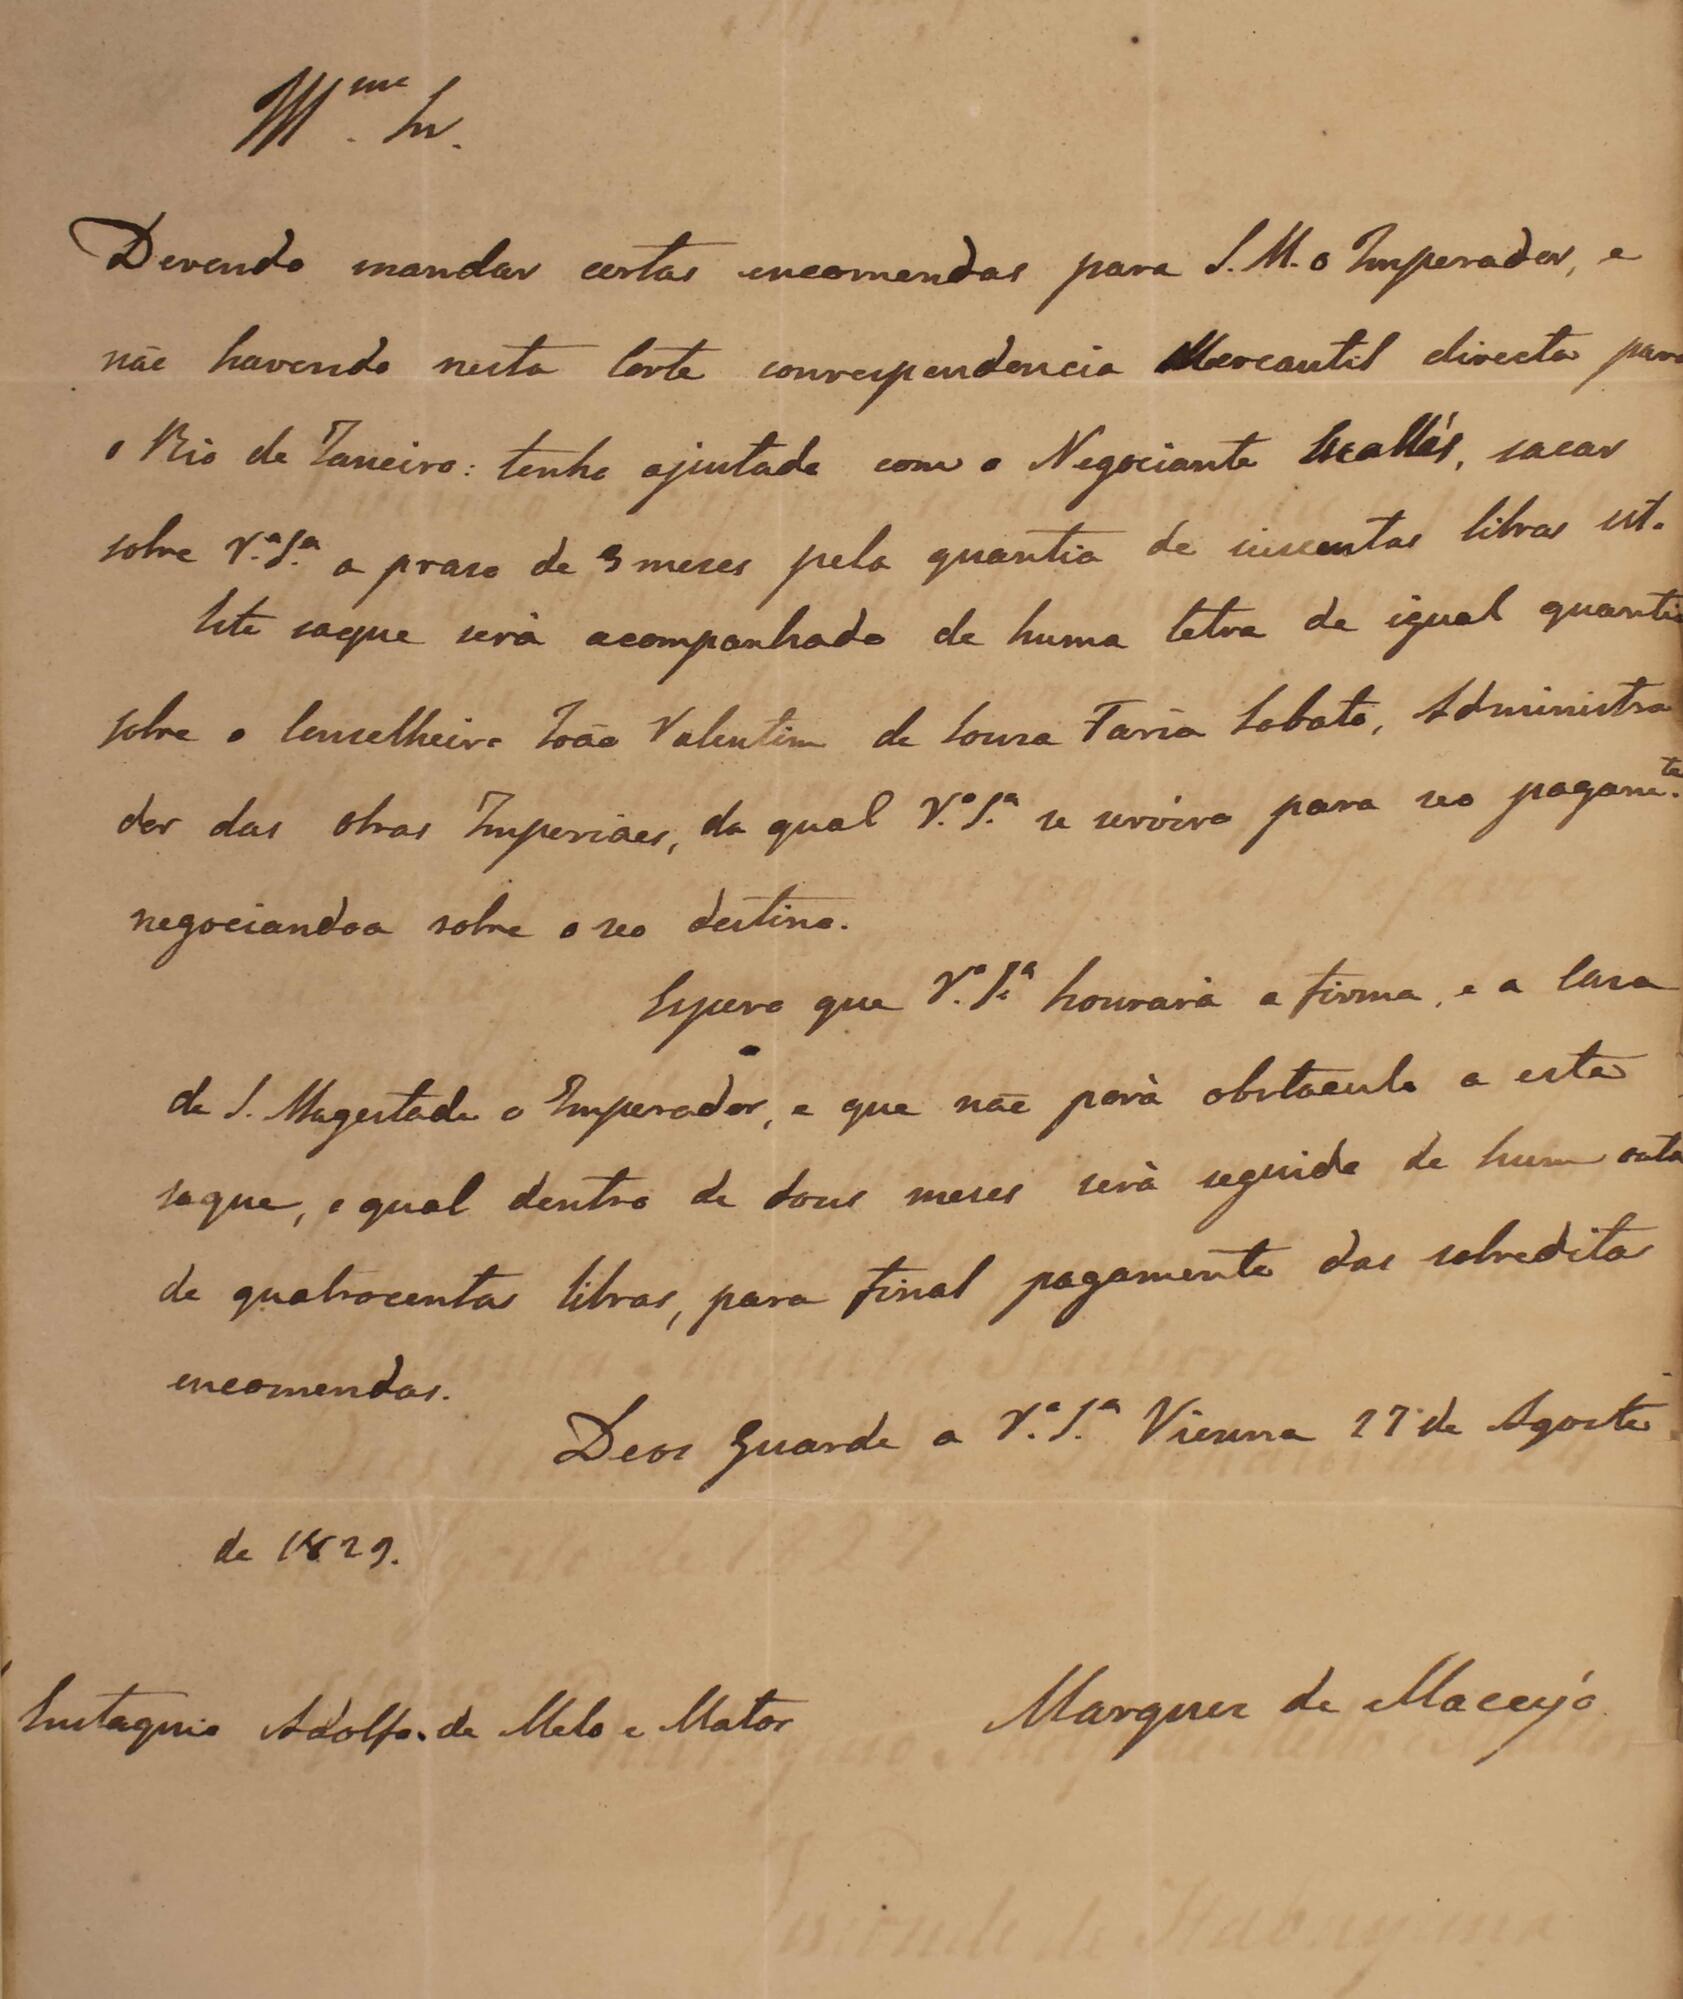 Ill.mo Sr.
Devendo mandar certas encomendas para S. M. o Imperador, e
não havendo nesta Corte correspondencia Mercantil directa para
o Rio de Janeiro: tenho ajustado com o Negociante sacar
sobre V.ª S.ª a praso de 3 meses pela quantia de seiscentas libras st.
Este saque será acompanhado de huma letra de igual quantia
sobre o Conselheiro João Valentim de Sousa Faria Lobato, Administra
dor das obras Imperiaes, da qual V.ª S.ª se servirá para seo pagam.to
negociandoa sobre o seo destino.
Espero que V.ª S.ª honrará a firma, e a Casa
de S. Magestade o Imperador, e que não porà obstaculo a este
saque, o qual dentro de dous meses serà seguido de hum outro
de quatrocentas libras, para final pagamento das sobreditas
encomendas.
Deos Guarde a V.ª S.ª Vienna 27 de Agosto
de 1829.
Eustaquio Adolfo de Melo e Mattos
Marquez de Maceyó